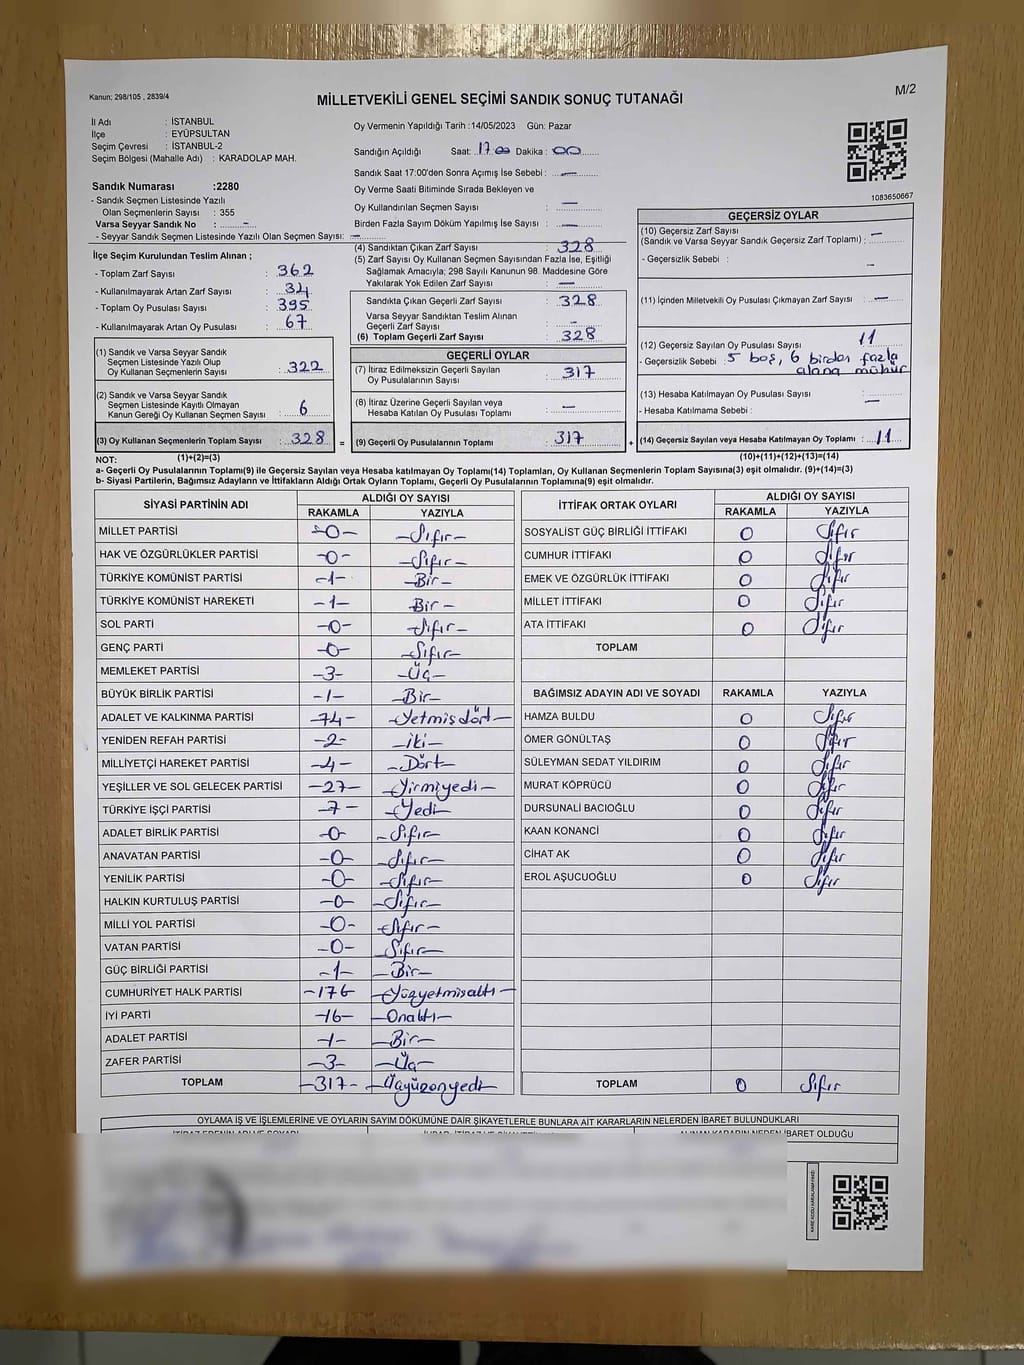 Kanun; 298/105 , 2839/4
MİLLETVEKİLİ GENEL SEÇİMİ SANDIK SONUÇ TUTANAĞI
M/2
İl Adı : İSTANBUL
İlçe : EYÜPSULTAN
Seçim Çevresi : İSTANBUL-2
Seçim Bölgesi (Mahalle Adı) : KARADOLAP MAH.
Sandık Numarası :2280
- Sandık Seçmen Listesinde Yazılı
Olan Seçmenlerin Sayısı : 355
Varsa Seyyar Sandık No : -
- Seyyar Sandık Seçmen Listesinde Yazılı Olan Seçmen Sayısı: —
İlçe Seçim Kurulundan Teslim Alınan ;
- Toplam Zarf Sayısı : 362
- Kullanılmayarak Artan Zarf Sayısı : 34
- Toplam Oy Pusulası Sayısı : 395
- Kullanılmayarak Artan Oy Pusulası : 67
(1) Sandık ve Varsa Seyyar Sandık
Seçmen Listesinde Yazılı Olup
Oy Kullanan Seçmenlerin Sayısı : 322
(2) Sandık ve Varsa Seyyar Sandık
Seçmen Listesinde Kayıtlı Olmayan
Kanun Gereği Oy Kullanan Seçmen Sayısı : 6
(3) Oy Kullanan Seçmenlerin Toplam Sayısı : 328 =
Oy Vermenin Yapıldığı Tarih :14/05/2023 Gün: Pazar
Sandığın Açıldığı Saat: 17 00 Dakika : 00
Sandık Saat 17:00'den Sonra Açımış İse Sebebi : —
Oy Verme Saati Bitiminde Sırada Bekleyen ve
Oy Kullandırılan Seçmen Sayısı : —
Birden Fazla Sayım Döküm Yapılmış İse Sayısı : —
(4) Sandıktan Çıkan Zarf Sayısı : 328
(5) Zarf Sayısı Oy Kullanan Seçmen Sayısından Fazla İse, Eşitliği
Sağlamak Amacıyla; 298 Sayılı Kanunun 98. Maddesine Göre
Yakılarak Yok Edilen Zarf Sayısı : —
Sandıkta Çıkan Geçerli Zarf Sayısı : 328
Varsa Seyyar Sandıktan Teslim Alınan
Geçerli Zarf Sayısı : -
(6) Toplam Geçerli Zarf Sayısı : 328
GEÇERLİ OYLAR
(7) İtiraz Edilmeksizin Geçerli Sayılan
Oy Pusulalarının Sayısı : 317
(8) İtiraz Üzerine Geçerli Sayılan veya
Hesaba Katılan Oy Pusulası Toplamı : —
(9) Geçerli Oy Pusulalarının Toplamı : 317 +
1083650667
GEÇERSİZ OYLAR
(10) Geçersiz Zarf Sayısı
(Sandık ve Varsa Seyyar Sandık Geçersiz Zarf Toplamı) : —
- Geçersizlik Sebebi : -
(11) İçinden Milletvekili Oy Pusulası Çıkmayan Zarf Sayısı : —
(12) Geçersiz Sayılan Oy Pusulası Sayısı : 11
- Geçersizlik Sebebi : 5 boş, 6 birden fazla
alana mühür
(13) Hesaba Katılmayan Oy Pusulası Sayısı : —
- Hesaba Katılmama Sebebi :
(14) Geçersiz Sayılan veya Hesaba Katılmayan Oy Toplamı : 11
NOT: (1)+(2)=(3) (10)+(11)+(12)+(13)=(14)
a- Geçerli Oy Pusulalarının Toplamı(9) ile Geçersiz Sayılan veya Hesaba katılmayan Oy Toplamı(14) Toplamları, Oy Kullanan Seçmenlerin Toplam Sayısına(3) eşit olmalıdır. (9)+(14)=(3)
b- Siyasi Partilerin, Bağımsız Adayların ve İttifakların Aldığı Ortak Oyların Toplamı, Geçerli Oy Pusulalarının Toplamına(9) eşit olmalıdır.
SİYASİ PARTİNİN ADI ALDIĞI OY SAYISI
RAKAMLA YAZIYLA
MİLLET PARTİSİ -0- -Sıfır-
HAK VE ÖZGÜRLÜKLER PARTİSİ -0- -Sıfır-
TÜRKİYE KOMÜNİST PARTİSİ -1- -Bir-
TÜRKİYE KOMÜNİST HAREKETİ -1- Bir-
SOL PARTİ -0- -Sıfır-
GENÇ PARTİ -0- -Sıfır-
MEMLEKET PARTİSİ -3- -Üç-
BÜYÜK BİRLİK PARTİSİ -1- -Bir-
ADALET VE KALKINMA PARTİSİ -74- -Yetmişdört-
YENİDEN REFAH PARTİSİ -2- -iki-
MİLLİYETÇİ HAREKET PARTİSİ -4- -Dört-
YEŞİLLER VE SOL GELECEK PARTİSİ -27- -Yirmiyedi-
TÜRKİYE İŞÇİ PARTİSİ -7- -Yedi-
ADALET BİRLİK PARTİSİ -0- -Sıfır-
ANAVATAN PARTİSİ -0- -Sıfır-
YENİLİK PARTİSİ -0- -Sıfır-
HALKIN KURTULUŞ PARTİSİ -0- -Sıfır-
MİLLİ YOL PARTİSİ -0- -Sıfır-
VATAN PARTİSİ -0- -Sıfır-
GÜÇ BİRLİĞİ PARTİSİ -1- -Bir-
CUMHURİYET HALK PARTİSİ -176 -Yüzyetmisaltı-
İYİ PARTİ -16- -Onaltı-
ADALET PARTİSİ -1- -Bir-
ZAFER PARTİSİ -3- -Üç-
TOPLAM -317- -Üçyüzonyedi-
İTTİFAK ORTAK OYLARI ALDIĞI OY SAYISI
RAKAMLA YAZIYLA
SOSYALİST GÜÇ BİRLİĞİ İTTİFAKI 0 Sıfır
CUMHUR İTTİFAKI 0 Sıfır
EMEK VE ÖZGÜRLÜK İTTİFAKI 0 Sıfır
MİLLET İTTİFAKI 0 Sıfır
ATA İTTİFAKI 0 Sıfır
TOPLAM
BAĞIMSIZ ADAYIN ADI VE SOYADI RAKAMLA YAZIYLA
HAMZA BULDU 0 Sıfır
ÖMER GÖNÜLTAŞ 0 Sıfır
SÜLEYMAN SEDAT YILDIRIM 0 Sıfır
MURAT KÖPRÜCÜ 0 Sıfır
DURSUNALİ BACIOĞLU 0 Sıfır
KAAN KONANCİ 0 Sıfır
CİHAT AK 0 Sıfır
EROL AŞUCUOĞLU 0 Sıfır
TOPLAM 0 Sıfır
OYLAMA İŞ VE İŞLEMLERİNE VE OYLARIN SAYIM DÖKÜMÜNE DAİR ŞİKAYETLERLE BUNLARA AİT KARARLARIN NELERDEN İBARET BULUNDUKLARI
ALINAN KARARIN NEDEN İBARET OLDUĞU